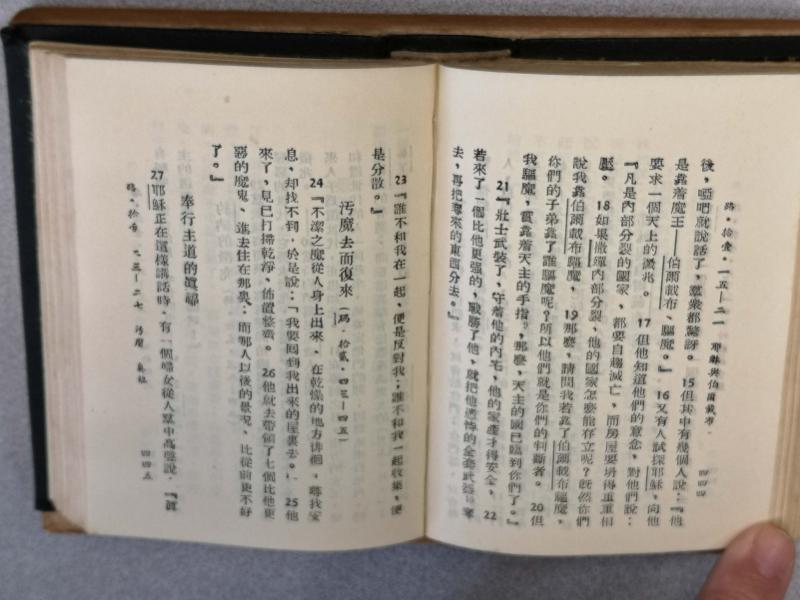 路·拾壹·一五—二一 耶穌與伯爾載布· 四四四
後，啞吧就說話了，羣衆都驚訝。15但其中有幾個人說：『他
是靠着魔王——伯爾載布、驅魔。』16又有人試探耶穌，向他
要求一個天上的徵兆。17但他知道他們的意念，對他們說：
『凡是內部分裂的國家，都要自趨滅亡，而房屋要坍得重重相
壓。18如果撒殫內部分裂，他的國家怎麼能存立呢？旣然你們
說我靠伯爾載布驅魔，19那麼，請問我若靠了伯爾載布驅魔，
你們的子弟靠了誰驅魔呢？所以他們就是你們的判斷者。20但
我驅魔，實靠着天主的手指，那麼，天主的國已臨到你們了。』
21『壯士武裝了，守着他的內宅，他的家產才得安全，22
若來了一個比他更强的，戰勝了他，就把他憑恃的全套武器奪
去，再把奪來的東西分去。』
23『誰不和我在一起，便是反對我；誰不和我一起收集，便
是分散。』
污魔去而復來（瑪·拾貳·四三—四五）
24『不潔之魔從人身上出來，在乾燥的地方徘徊，尋找安
息，却找不到，於是說：「我要回到我出來的屋裏去。」25他
來了，見已打掃乾凈，佈置整齊。26他就去帶領了七個比他更
惡的魔鬼，進去住在那裏；而那人以後的景況，比從前更不好
了。』
奉行主道的眞福
27耶穌正在這樣講話時，有一個婦女從人羣中高聲說，『眞
路·拾壹 二三—二七 污魔 眞福 四四五